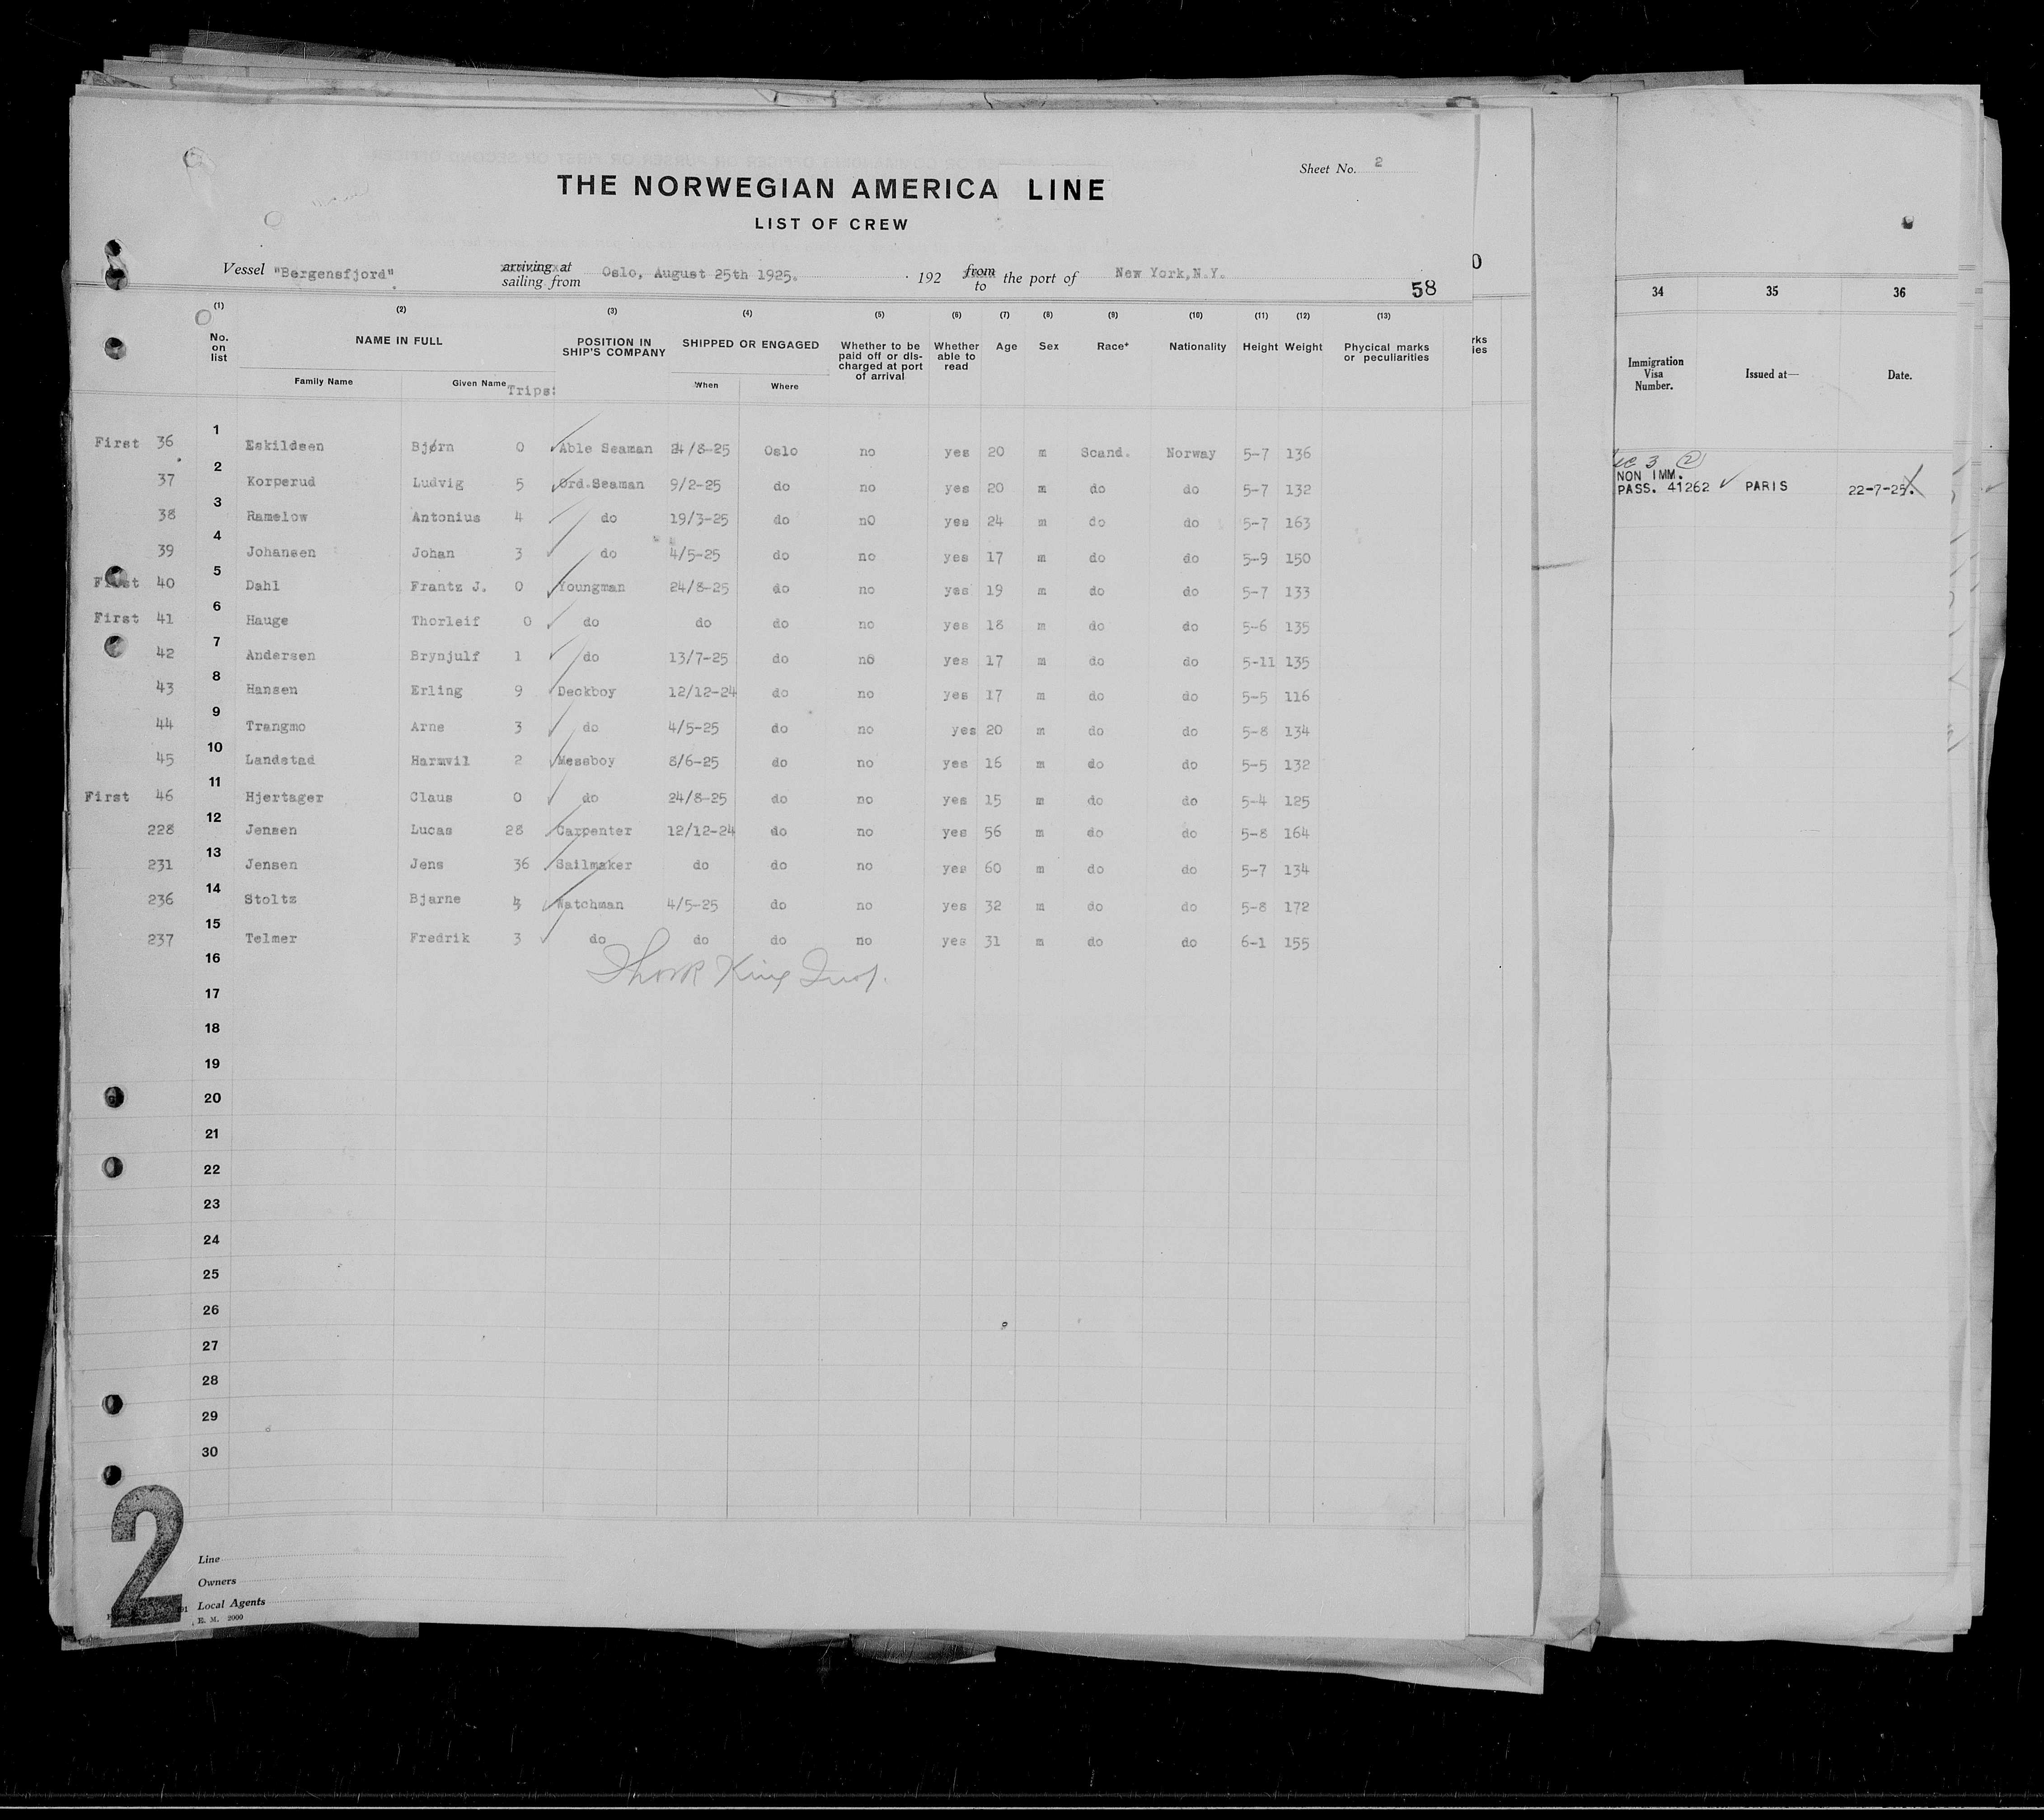 Sheet No. 2
THE NORWEGIAN AMERICA LINE
LIST OF CREW
Vessel "Bergensfjord" arriving at sailing from Oslo, August 25th 1925. 192 from to the port of New York, N.Y.
58
(1) (2) (3) (4) (5) (6) (7) (8) (9) (10) (11) (12) (13)
No. on list NAME IN FULL POSITION IN SHIP'S COMPANY SHIPPED OR ENGAGED Whether to be paid off or discharged at port of arrival Whether able to read Age Sex Race* Nationality Height Weight Physical marks or peculiarities
Family Name Given Name Trips: When Where
First 36 1 Eskildsen Bjørn 0 Able Seaman 24/8-25 Oslo no yes 20 m Scand. Norway 5-7 136
37 2 Korperud Ludvig 5 Ord.Seaman 9/2-25 do no yes 20 m do do 5-7 132
38 3 Ramelow Antonius 4 do 19/3-25 do nO yes 24 m do do 5-7 163
39 4 Johansen Johan 3 do 4/5-25 do no yes 17 m do do 5-9 150
First 40 5 Dahl Frantz J. 0 Youngman 24/8-25 do no yes 19 m do do 5-7 133
First 41 6 Hauge Thorleif 0 do do do no yes 18 m do do 5-6 135
42 7 Andersen Brynjulf 1 do 13/7-25 do no yes 17 m do do 5-11 135
43 8 Hansen Erling 9 Deckboy 12/12-24 do no yes 17 m do do 5-5 116
44 9 Trangmo Arne 3 do 4/5-25 do no yes 20 m do do 5-8 134
45 10 Landstad Harmvil 2 Messboy 8/6-25 do no yes 16 m do do 5-5 132
First 46 11 Hjertager Claus 0 do 24/8-25 do no yes 15 m do do 5-4 125
228 12 Jensen Lucas 28 Carpenter 12/12-24 do no yes 56 m do do 5-8 164
231 13 Jensen Jens 36 Sailmaker do do no yes 60 m do do 5-7 134
236 14 Stoltz Bjarne Watchman 4/5-25 do no yes 32 m do do 5-8 172
237 15 Telmer Fredrik 3 do do do no yes 31 m do do 6-1 155
16
17
18
19
20
21
22
23
24
25
26
27
28
29
30
2
Line
Owners
Local Agents
E. M. 2000
0
rks
ies
34 35 36
Immigration Visa Number. Issued at— Date.
3 2
NON IMM.
PASS. 41262 PARIS 22-7-25.